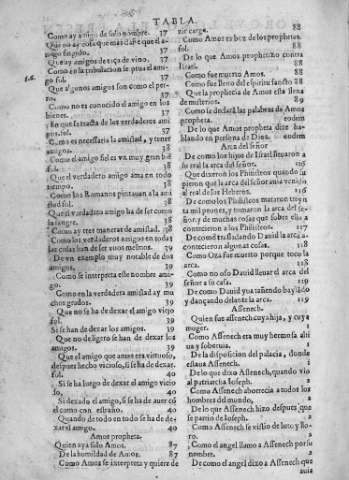 TABLA.
Como ay amigo de solo nombre. 37
Que no ay cosa que mas dañe que el amigo fingido. 37
Que ay amigos de taça de vino. 37
Como en la tribulacion se prueua el amigo
Que algunos amigos son como el perro. 37
Como no es conocido el amigo en los bienes. 37
En que se trata de los verdaderos amigos. 37
Como es necessaria la amistad, y tener amigos.
Como el amigo fiel es muy gran bien
Que el verdadero amigo ama en todo tiempo. 38
Como los Romanos pintauan la amistad
Que el verdadero amigo ha de ser como la sangre. 38
Como ay tres maneras de amistad. 38
Como los verdaderos amigos en todas las cosas han de ser vnos mesmos. 39
De vn exemplo muy notable de dos amigos. 39
Como se interpreta este nombre amigo. 39
Como en la verdadera amistad ay muchos grados. 39
Que no se ha de dexar el amigo viejo
Si se han de dexar los amigos. 39
Que no de ligero se han de dexar los amigos. 39
Que el amigo que antes era virtuoso, despues hecho vicioso, si se ha de dexar. 40
Si se ha luego de dexar el amigo vicioso, 40
Si dexado el amigo, si se ha de auer con el como con estraño. 40
Quando de todo en todo se ha de dexar el amigo. 40
Amos propheta.
Quien aya sido Amos. 87
De la humildad de Amos. 87
Como Amos se interpreta y quiere dezir carga. 88
Como Amos es boz de los prophetas. 88
De lo que Amos prophetizo contra Israel. 88
Como fue muerto Amos. 88
Como fue lleno del spiritu sancto 88
Que la prophecia de Amos esta llena de misterios. 89
Como se declarã las palabras de Amos propheta. eodem
De lo que Amos propheta dize hablando en persona de Dios. eodem
Arca del señor
De como los hijos de Israel lleuaron a su real la arca del señor. 116
Que dixeron los Philisteos quando supieron que la arca del señor auia venido al real de los Hebreos.
De como los Philisteos mataron treynta mil peones, y tomaron la arca del señor, y de muchas cosas que sobre ella acontecieron a los Philisteos. 117
De como trasladando Dauid la arca acontecieron algunas cosas. 118
Como Oza fue muerto porque toco la arca. 118
Como no oso Dauid lleuar el arca del señor a su casa. 119
De como Dauid yua tañendo baylãdo y dançando delante la arca. 119
Assenech.
Quien fue assenech cuya hija, y cuya muger.
Como Assenech era muy hermosa altiua y soberuia. 1
De la disposicion del palacio, donde estaua Assenech. 1
De lo que dixo Assenech, quando vio al patriarcha Ioseph. 2
Como Assenech aborrecia a todos los hombres del mundo, 2
De lo que Assenech hizo despues que se partio de Ioseph. 2
Como Assenech se vistio de luto y lloro. 2
Como el angel llamo a Assenech por su nombre. 2
De como el angel dixo a Assenech que auia